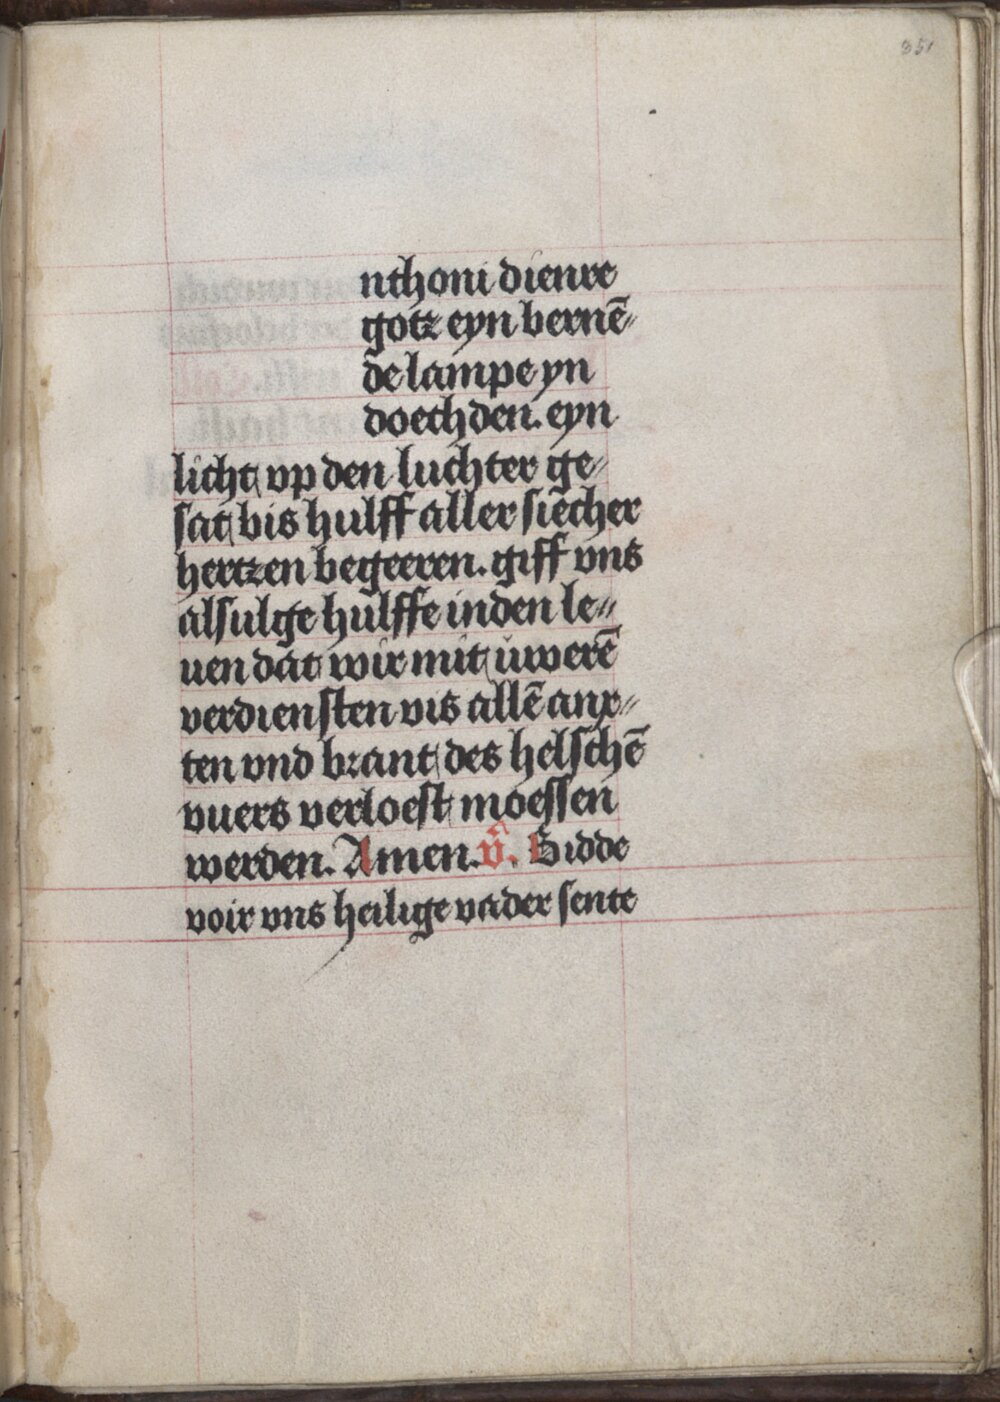 351
nthoni dienre
gotz eyn bernē
de lampe yn
doechden. eyn
licht vp den luchter ge⸗
sat bis hulff aller siēcher
hertzen begeeren. giff vns
alsulge hulffe inden le⸗
uen dat wir mit uwerē
verdiensten vis allē anx⸗
ten vnd brant des helschē
vuers verloest moessen
werden. Amen. v̄. Bidde
voir vns heilige vader sente